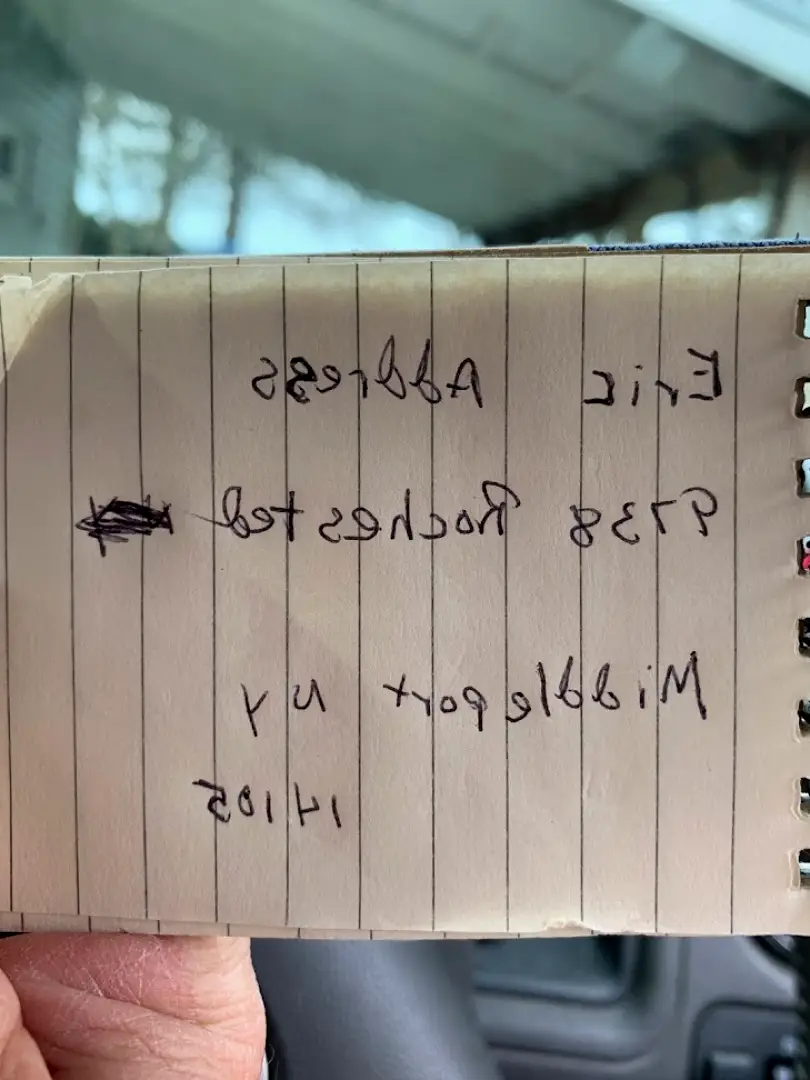 Eric Address
9738 Rochester Rd
Middleport NY
14105